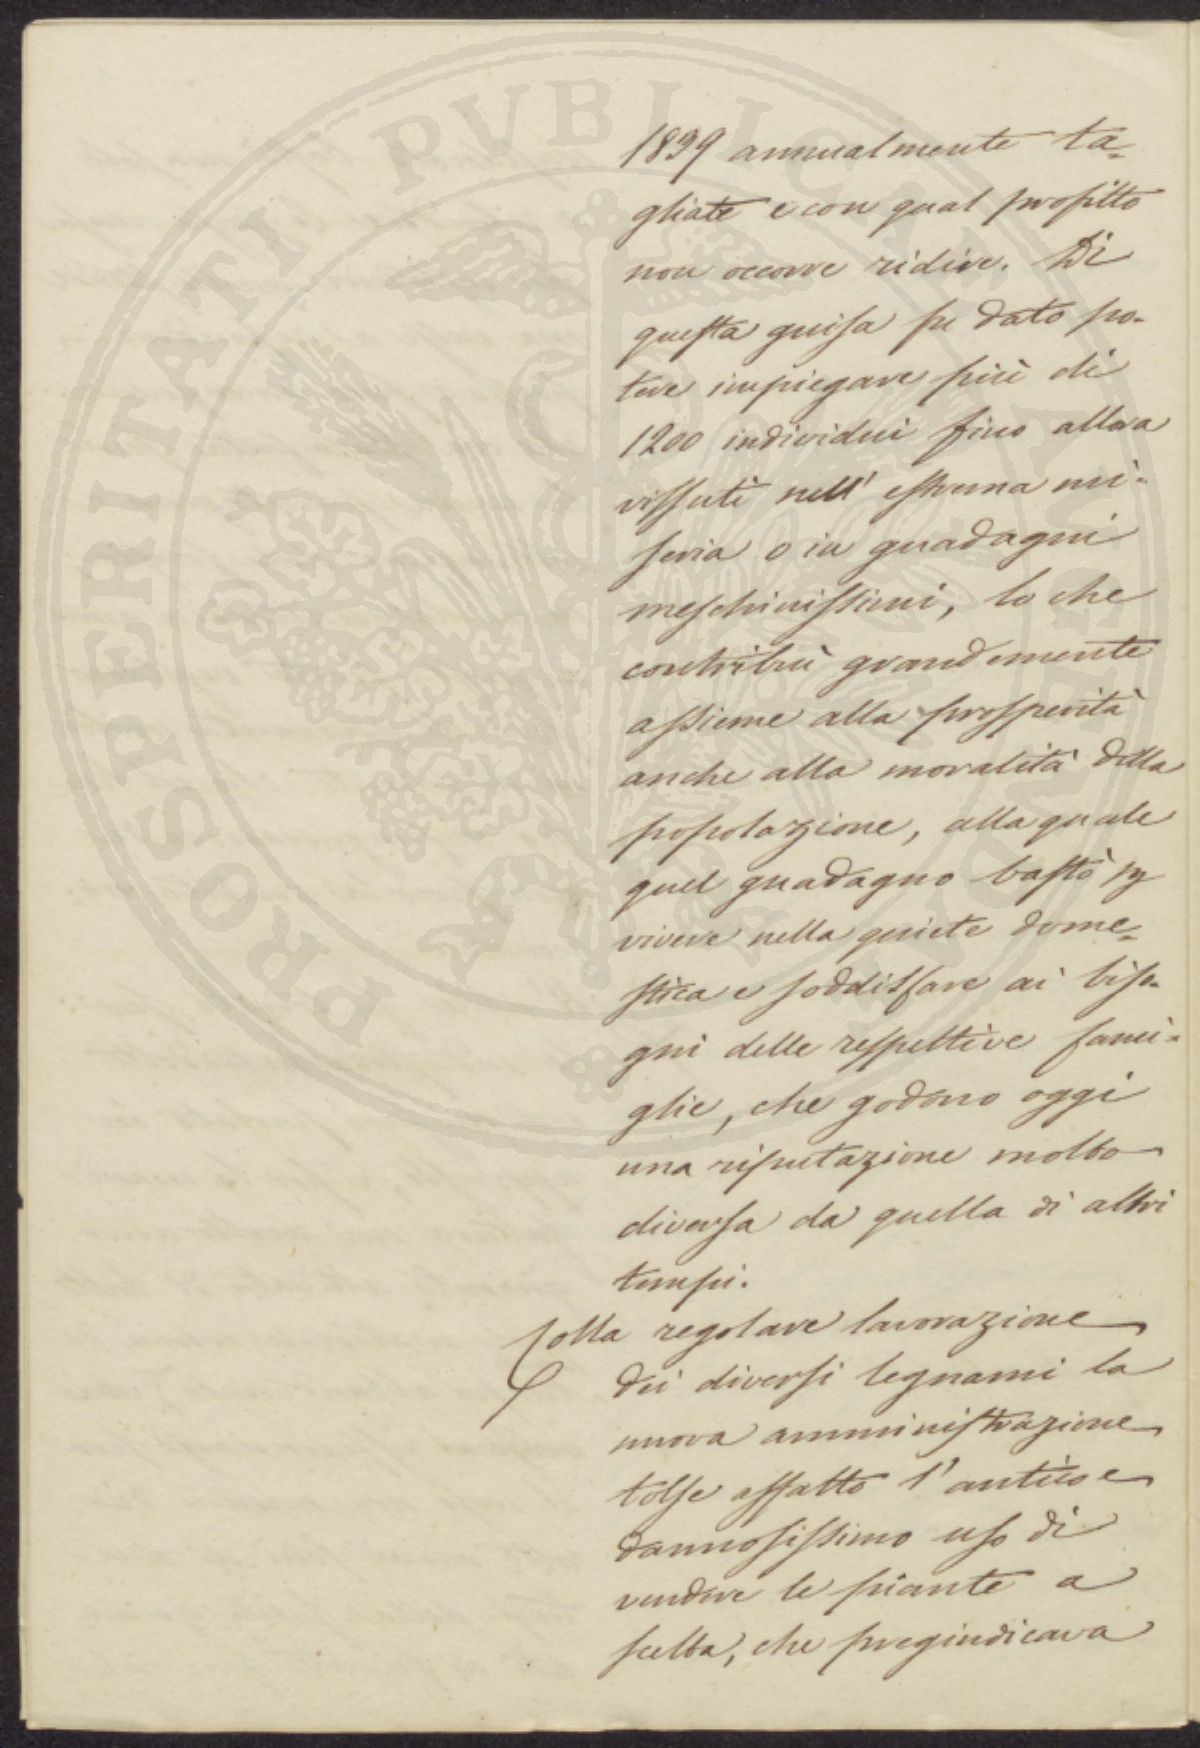 1839 annualmente ta-
gliate e con qual profitto
non occorre ridire. Di
questa guisa fu dato po-
tere impiegare più di
1200 individui fino allora
vissuti nell' estrema mi-
seria o in guadagni
meschinissimi, lo che
contribuì grandemente
assieme alla prosperità
anche alla moralità della
popolazione, alla quale
quel guadagno bastò p
vivere nella quiete dome-
stica e soddisfare ai biso-
gni delle respettive fami-
glie, che godono oggi
una riputazione molto
diversa da quella di altri
tempi.
Colla regolare lavorazione
dei diversi legnami la
nuova amministrazione
tolse affatto l'antico e
dannosissimo uso di
vendere le piante a
scelta, che pregiudicava
PROSPERITATI PUBLICAE AUGENDAE